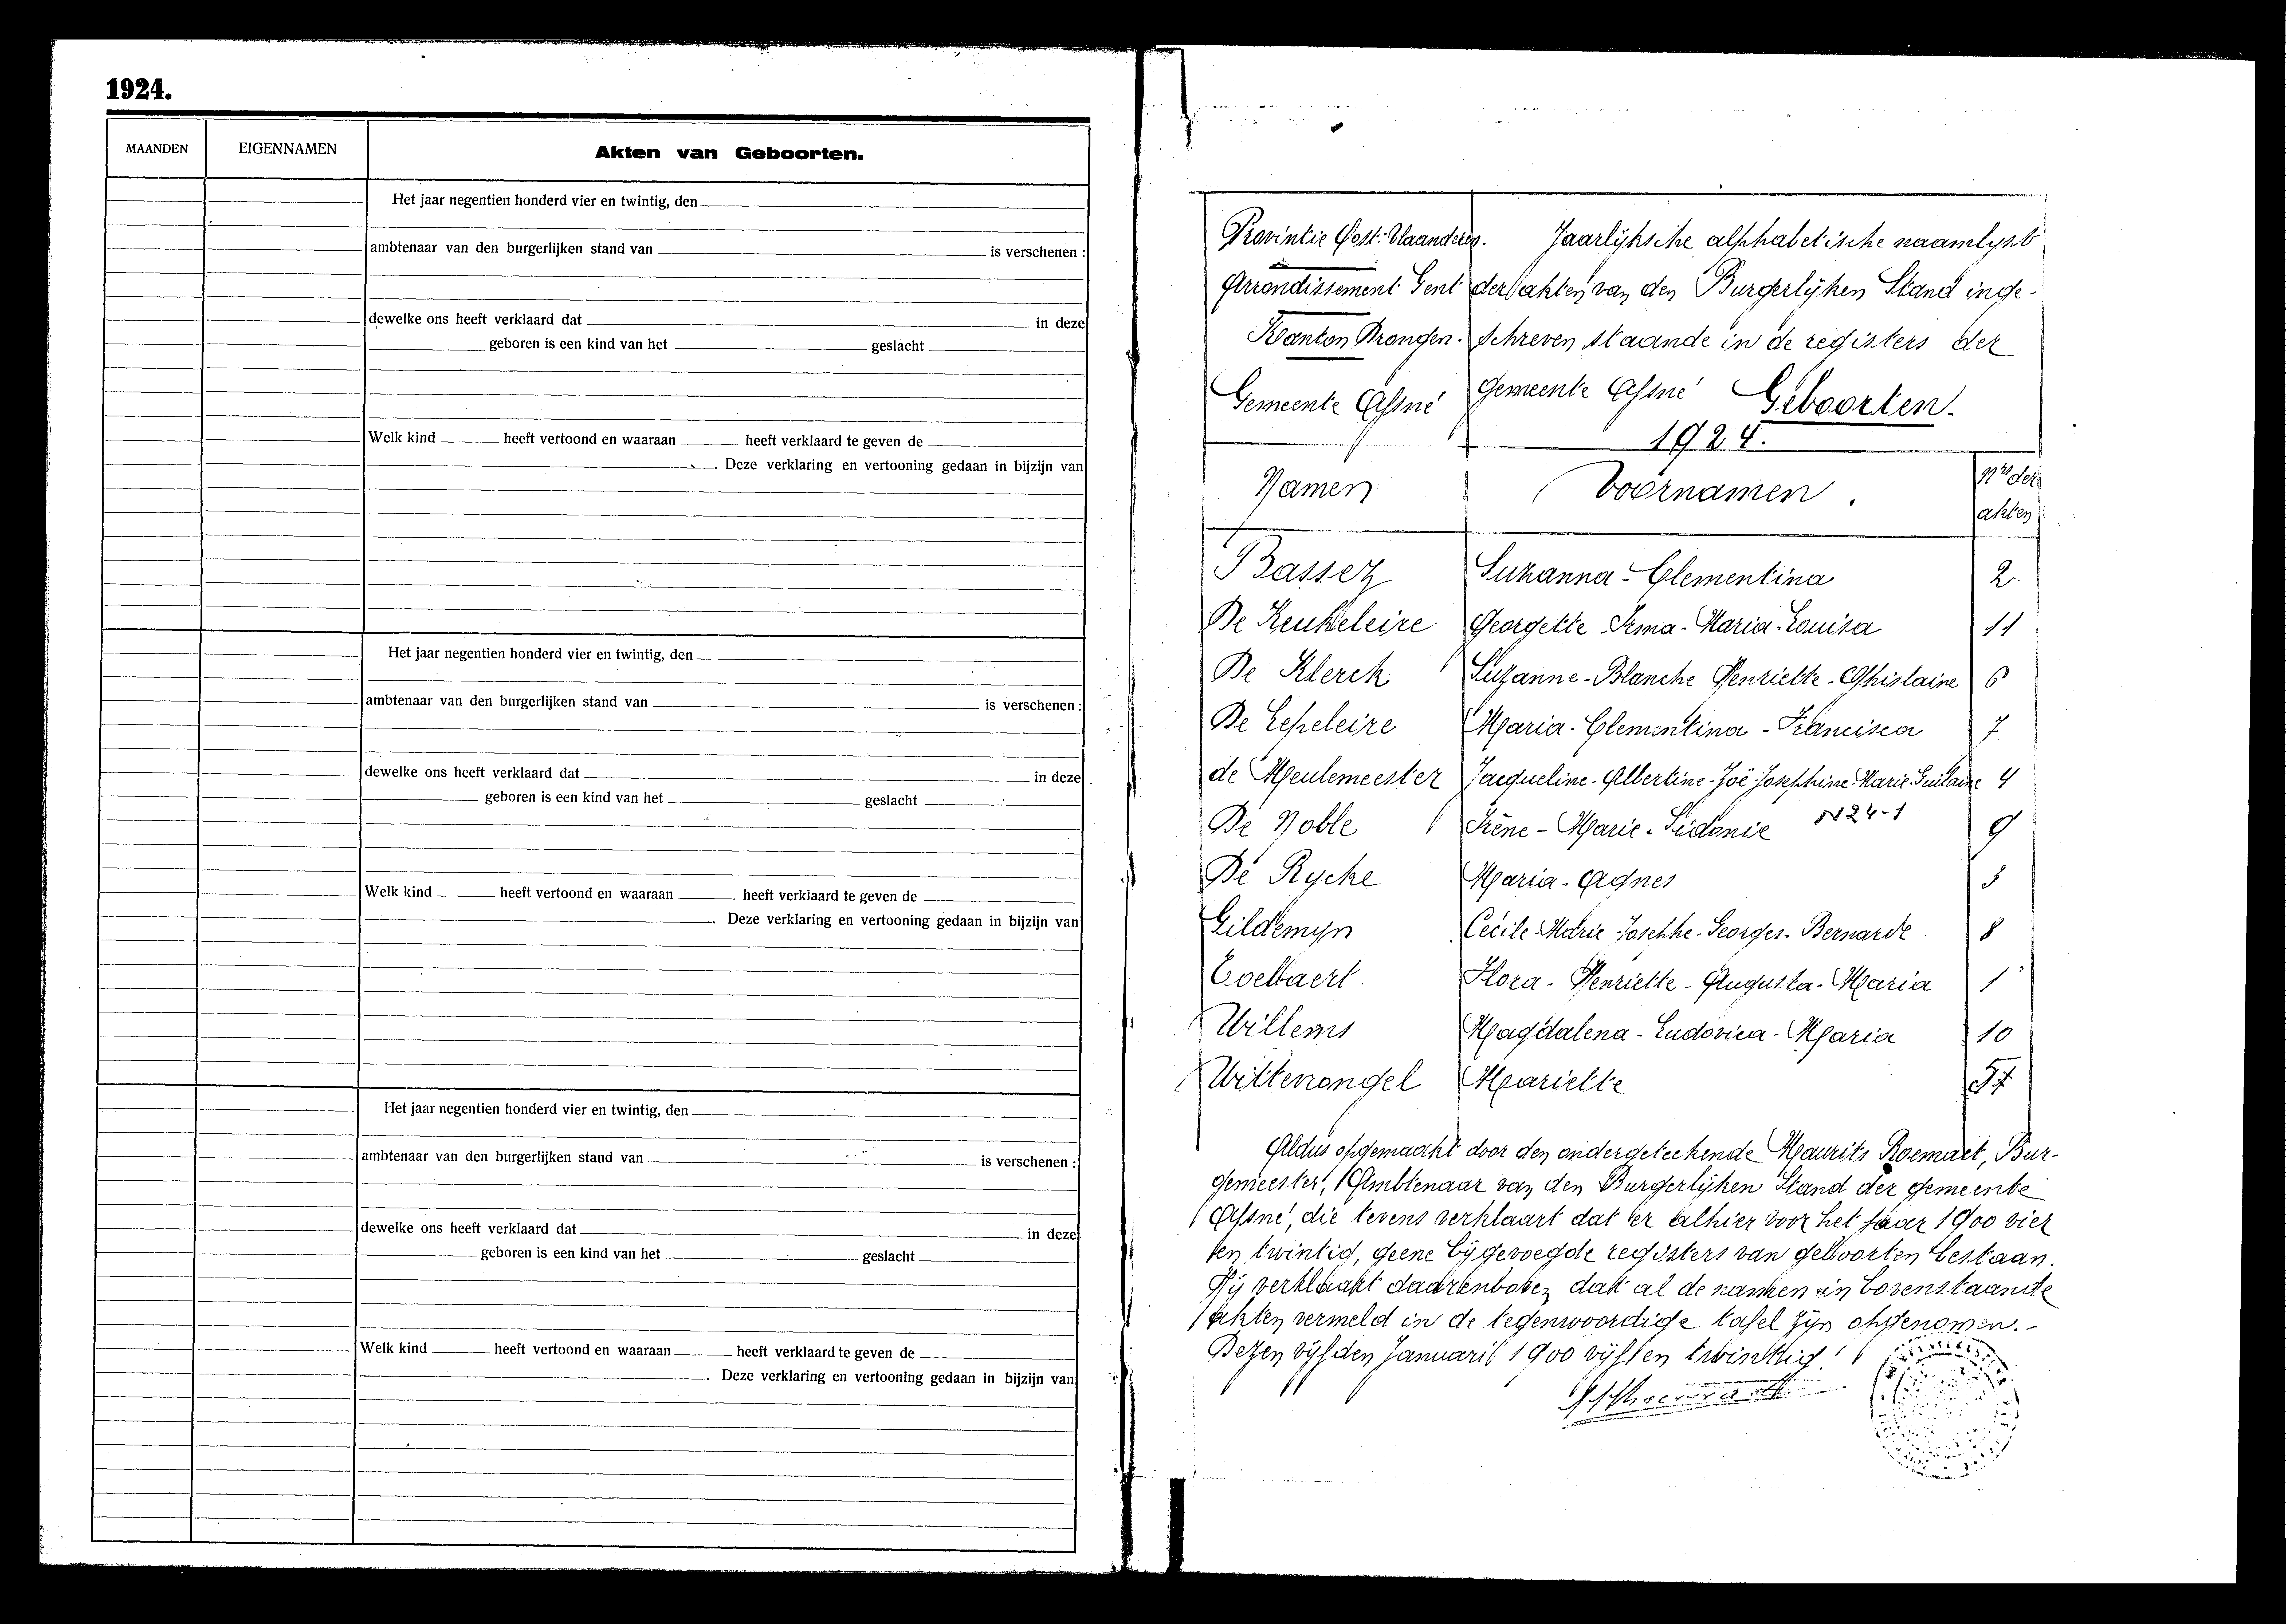 1924.
MAANDEN EIGENNAMEN Akten van Geboorten.
Het jaar negentien honderd vier en twintig, den
ambtenaar van den burgerlijken stand van is verschenen :
dewelke ons heeft verklaard dat in deze
geboren is een kind van het geslacht
Welk kind heeft vertoond en waaraan heeft verklaard te geven de
. Deze verklaring en vertooning gedaan in bijzijn van
Het jaar negentien honderd vier en twintig, den
ambtenaar van den burgerlijken stand van is verschenen :
dewelke ons heeft verklaard dat in deze
geboren is een kind van het geslacht
Welk kind heeft vertoond en waaraan heeft verklaard te geven de
. Deze verklaring en vertooning gedaan in bijzijn van
Het jaar negentien honderd vier en twintig, den
ambtenaar van den burgerlijken stand van is verschenen :
dewelke ons heeft verklaard dat in deze
geboren is een kind van het geslacht
Welk kind heeft vertoond en waaraan heeft verklaard te geven de
. Deze verklaring en vertooning gedaan in bijzijn van
Provintie Oost-Vlaanderen.
Arrondissement Gent
Kanton Drongen.
Gemeente Afsné
Jaarlijksche alphabetische naamlyst
der akten van den Burgerlijken Stand inge-
schreven staande in de registers der
gemeente Afsné Geboorten.
1924.
Namen Voornamen. Nrs der akten
Bassez Suzanna-Clementina 2
De Keukeleire Georgette Irma-Maria-Louisa 11
De Klerck Suzanne-Blanche Henriette-Ghislaine 6
De Lepeleire Maria-Clementina-Francisca 7
de Meulemeester Jacqueline-Albertine-Joë-Josephine-Marie-Guilaine 4
De Noble Irène-Marie-Sidonie N24-1 9
De Rycke Maria-Agnes 3
Gildemyn Cécile-Marie-Josephe-Georges-Bernarde 8
Flora-Henriette-Augusta-Maria 1
Willems Magdalena-Ludovica-Maria 10
Wittevrongel Mariette 5
Aldus opgemaakt door den ondergeteekende Maurits Bur-
gemeester, Ambtenaar van den Burgerlijken Stand der gemeente
Afsné, die tevens verklaart dat er alhier voor het jaar 1900 vier
en twintig, geene bijgevoegde registers van geboorten bestaan.
Hij verklaart daarenboven dat al de namen in bovenstaande
akten vermeld in de tegenwoordige tafel zijn opgenomen.-
Dezen vijfden Januarij 1900 vijf en twintig.